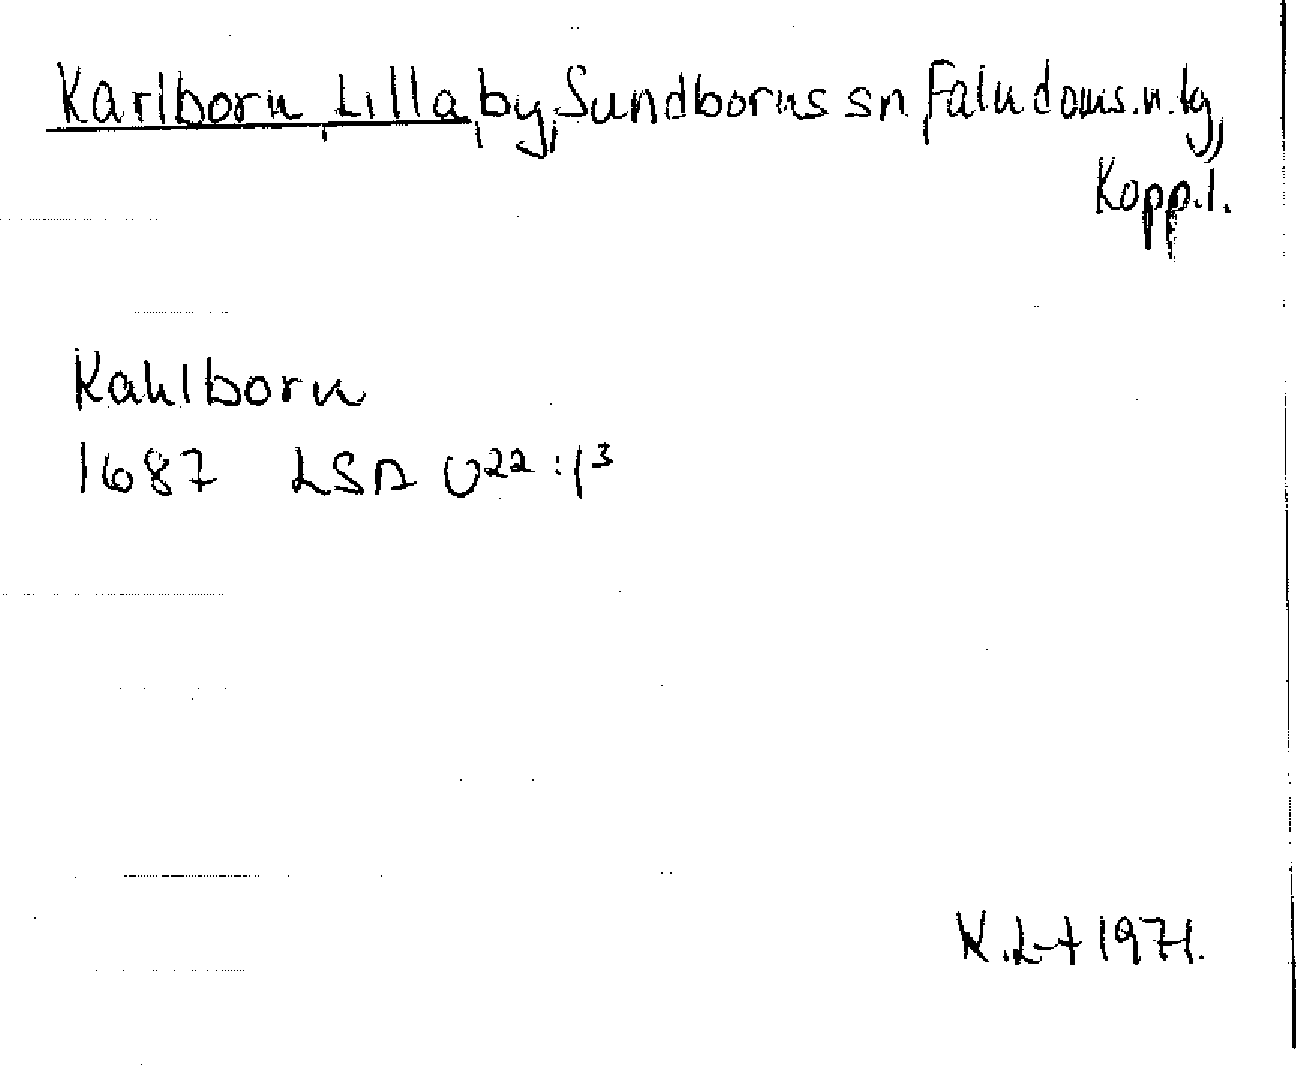 Karlborn, Lilla, by, Sundborns sn, Falu doms. n. tg,
Kopp. l.
Kahlborn
1687 LSA U²²:1³
K. L-t 1971.